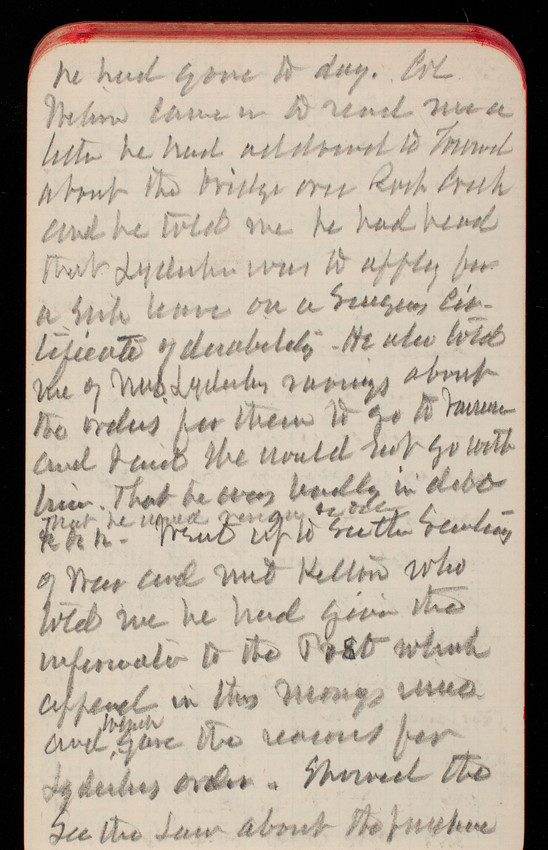 he had gone to day. Col
Wilson came in to read me a
letter he had addressed to
about the bridge over Rock Creek
and he told me he had heard
that Lydecker was to apply for
a sick leave on a Surgeons Cer-
tificate of disability. He also told
me of Mrs. Lydeckers ravings about
the orders for them to go to
and said she would not go with
him. That he was badly in debt
that he would resign &c
&c &c. Went up to see the Secretary
of War and met Kelton who
told me he had given the
information to the Post which
appeared in this mornings issue
and which gave the reasons for
Lydeckers order. Showed the
Sec the Law about the